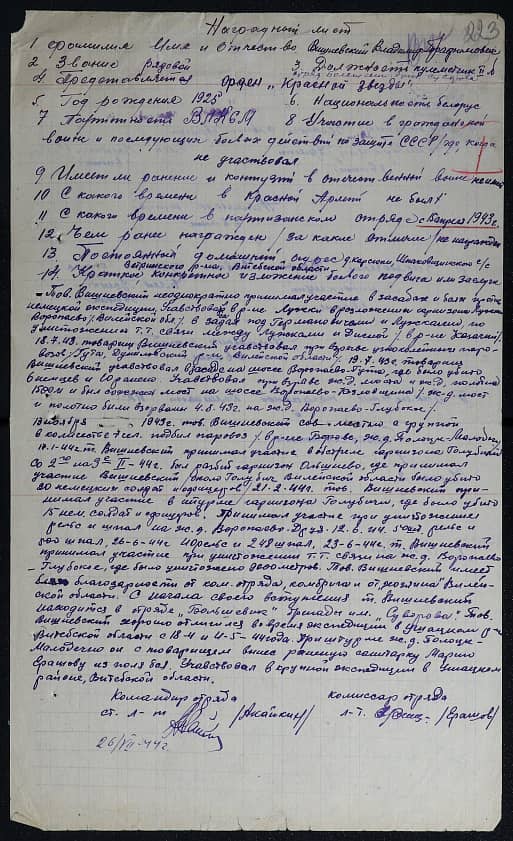 223
Наградной лист
1 Фамилия Имя и Отчество Вишневский Владимир
2 Звание рядовой 3. Должность пулеметчик
4 Представляется орден „Красной звезды"
5. Год рождения 1925 6. Национальность белорус
7 Партийность ВЛКСМ 8 Участие в гражданской
войне и последующих боевых действий по защите СССР /где, когда
не участвовал
9 Имеет ли ранения и контузии в отечественной войне
10 С какого времени в Красной Армии не был
11 С какого времени в партизанском отряде с 1943 г.
12 Чем ранее награжден /за какие отличия/ не награжден
13 Постоянный домашний адрес д. с/с
р-на, Витебской области
14 Краткое конкретное изложение боевого подвига или заслуг
- Тов. Вишневский неоднократно принимал участие в засадах и боях против
немецкой экспедиции. Участвовал в р-не Лужки в разложении гарнизона
Воропаево /Вилейской обл/, в засаде под Германовичами и Лужками, по
уничтожению т.т. связи между Лужками и Дисной /в р-не
18.7.43. товарищ Вишневский участвовал при взрыве паро-
воза, /Гута, р-н Вилейской области/ 19.7.43 г. товарищ
Вишневский участвовал в засаде на шоссе Воропаево-Гута, где было убито
6 немцев и ранено. Участвовал при взрыве ж.д. моста и ж.д. полотна
150 м и был сожжен мост на шоссе Воропаево- /ж.д. мост
и полотно были взорваны 4.8.43 г. на ж.д. Воропаево-Глубокое/.
1943 г. тов. Вишневский совместно с группой
в количестве 7 чел. подбил паровоз /в р-не ж.д. Полоцк-Молодечно
-1-44 г. т. Вишневский принимал участие в гарнизона Голубичи
Со 2го на 3е II-44 г. был разбит гарнизон Ольшнево, где принимал
участие Вишневский около Голубич Вилейской области было убито
20 немецких солдат и офицеров 21.2-44 г. тов. Вишневский при-
нимал участие в штурме гарнизона Голубичи, где было убито
15 нем. солдат и офицеров. Принимал участие при уничтожении
рельс и шпал на ж.д. Воропаево- 12.6.44. рельс и
500 шпал, 26-6-44 г. 40 рельс и 248 шпал, 23-6-44 г. т. Вишневский
принимал участие при уничтожении т.т. связи на ж.д. Воропаево
-Глубокое, где было уничтожено метров. Тов. Вишневский имеет
благодарности от ком. отряда, комбрига и от Вилей-
ской области. С начала своего вступления т. Вишневский
находится в отряде „Большевик" бригады им. „Суворова". Тов.
Вишневский хорошо отличился во время экспедиции в Ушацком р-не
Витебской области с 18-4 и 4-5-44 года. При штурме ж.д. Полоцк-
Молодечно он с товарищем вынес раненую санитарку Марию
Ерашову из поля боя. Участвовал в крупной экспедиции в Ушацком
районе, Витебской области.
Командир отряда комиссар отряда
ст. л-т /Акайкин/ л-т. /Ерашов/
26/VII-44 г.